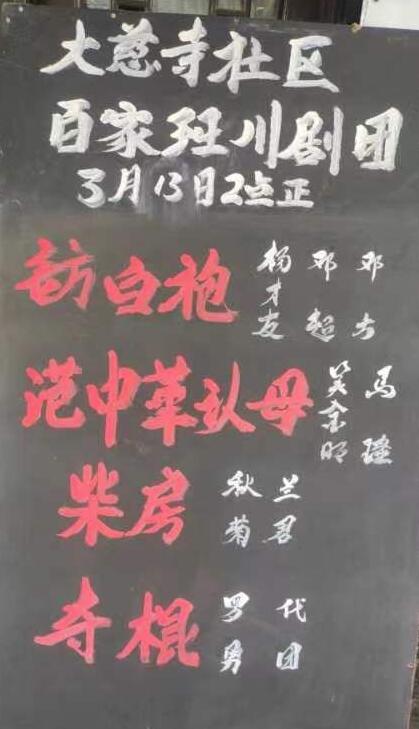 大慈寺社区
百家班川剧团
3月13日2点正
访白袍 杨才友 邓超 邓
范中华认母 吴金明 马瑶
柴房 秋菊 兰君
夺棍 罗勇 代团